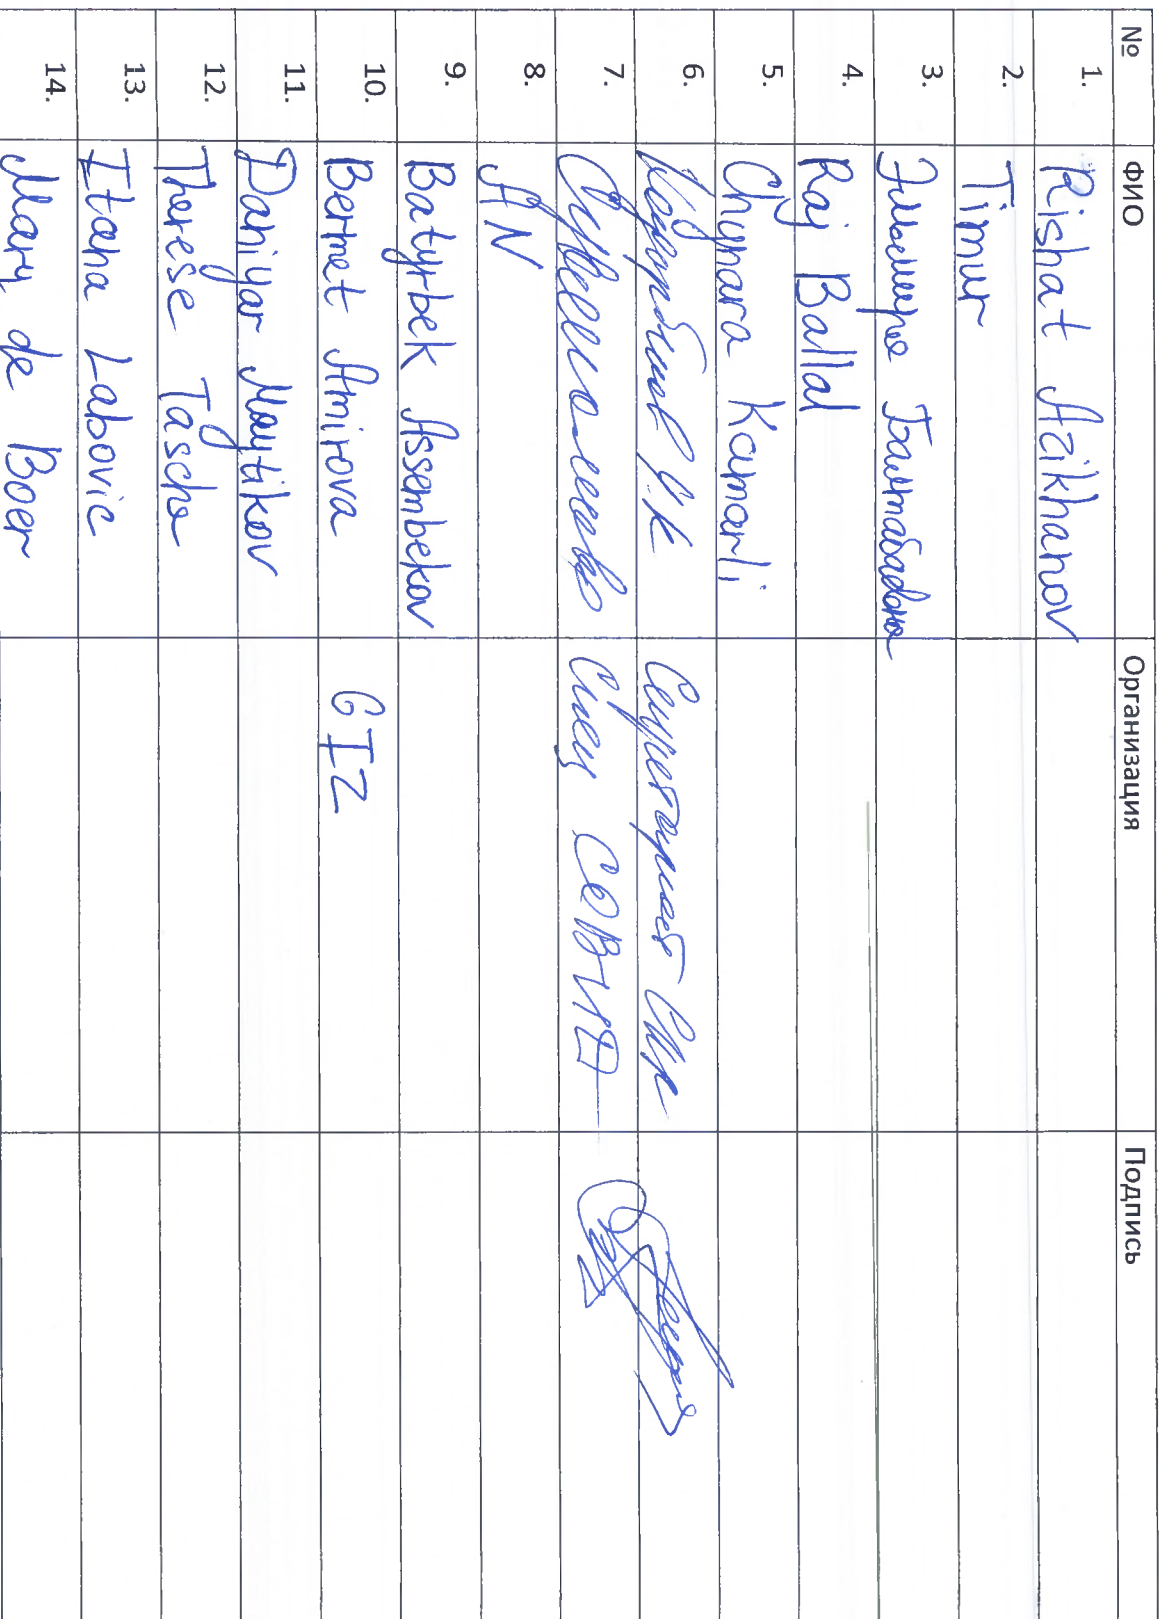 № ФИО Организация Подпись
1. Rishat Azikhanov
2. Timur
3. Эльмира
4. Raj Ballal
5. Chynara Kamarli
6. Секретариат
7. Спец
8. AN
9. Batyrbek Assembekov
10. Bermet Amirova GIZ
11. Daniyar Maytikov
12. Therese Tasche
13. Itana Labovic
14. Mary de Boer